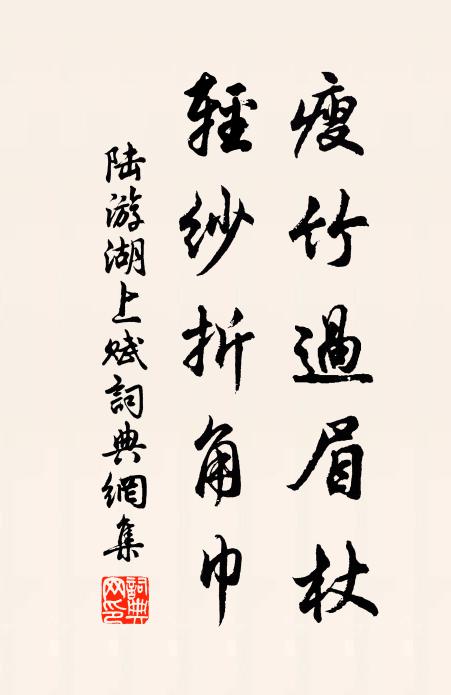 瘦竹過眉杖
輕紗折角巾
陆游湖上賦詞典網集
詞典网印